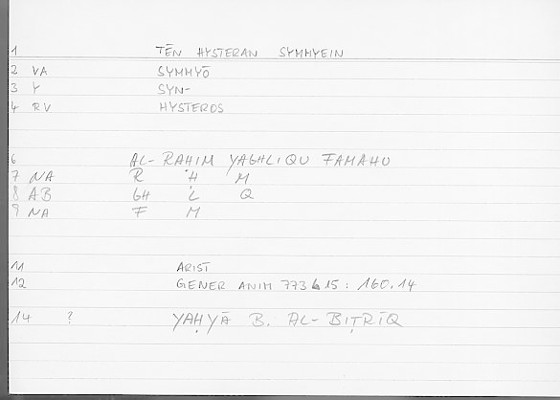 1 TĒN HYSTERAN SYMMYEIN
2 VA SYMMYŌ
3 Y SYN-
4 RV HYSTEROS
6 AL-RAHIM YAGHLIQU FAMAHU
7 NA R Ḥ M
8 AB GH L Q
9 NA F M
11 ARIST
12 GENER ANIM 773b15 : 160.14
14 ? YAḤYĀ B. AL-BIṬRĪQ